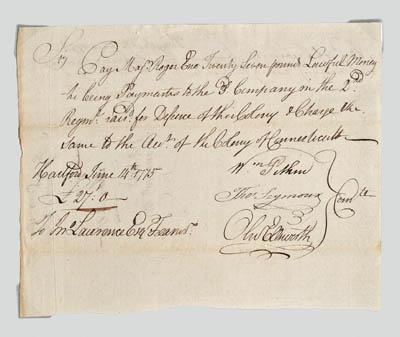 Sir
Pay Majr Roger Eno Twenty Seven pounds Lawfull Money
it being Payments to the Company in the 2d
Regmt. rais'd for Defence of this Colony & Charge the
same to the Acct. of the Colony of Connecticutt
Hartford June 4th 1775
£27..0
Wm Pitkin
Thos. Seymour
Olivr Ellsworth
Comtte
To Jno. Lawrence Esqr Treasr.